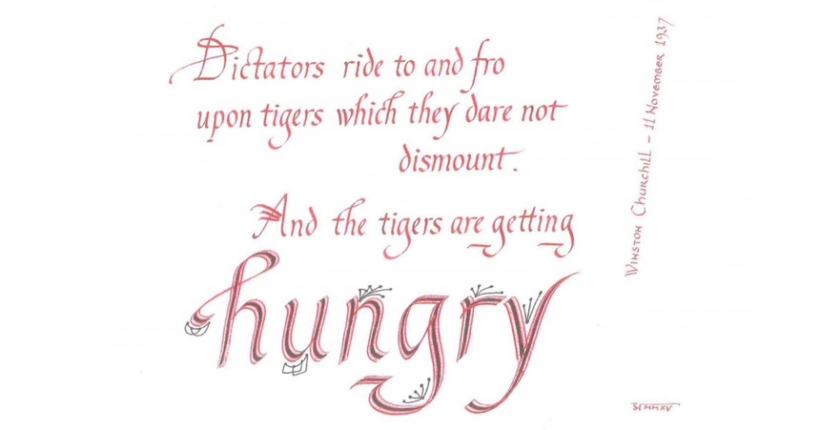 Dictators ride to and fro
upon tigers which they dare not
dismount.
And the tigers are getting
hungry
Winston Churchill – 11 November 1937